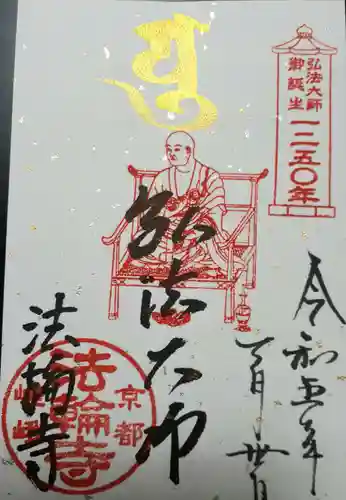 弘法大師
御誕生
一二五〇年
令和五年
弘法大師
法輪寺
京都
法輪寺
嵯峨